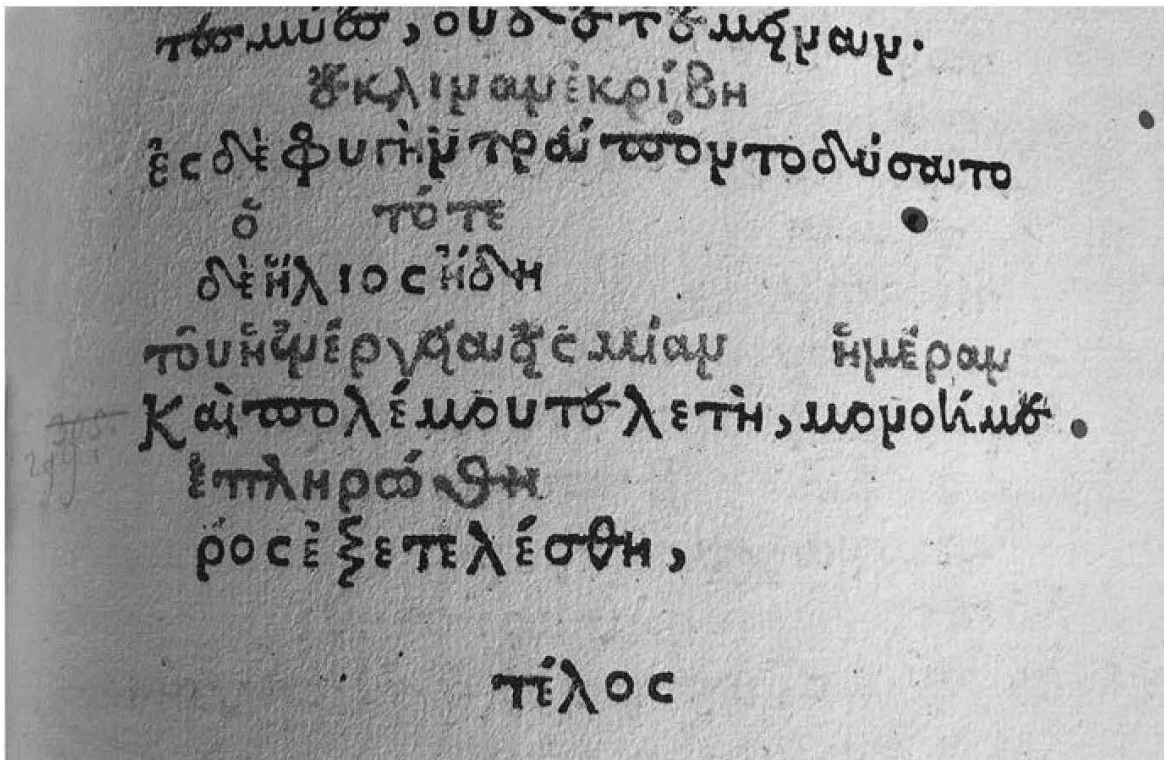 μύασ, ουδ' ἔτ' ἔμειναν.
ἔκλιναν ἐκρίβη
ἐς δὲ φυγὴν τράποντο δύσατο
ὁ τότε
δὲ ἥλιος ἤδη
τοῦ μίαν ἡμέραν
Καὶ πολέμου τελετὴ, μονοήμε
ἐπληρώθη
ρος ἐξετελέσθη,
τέλος